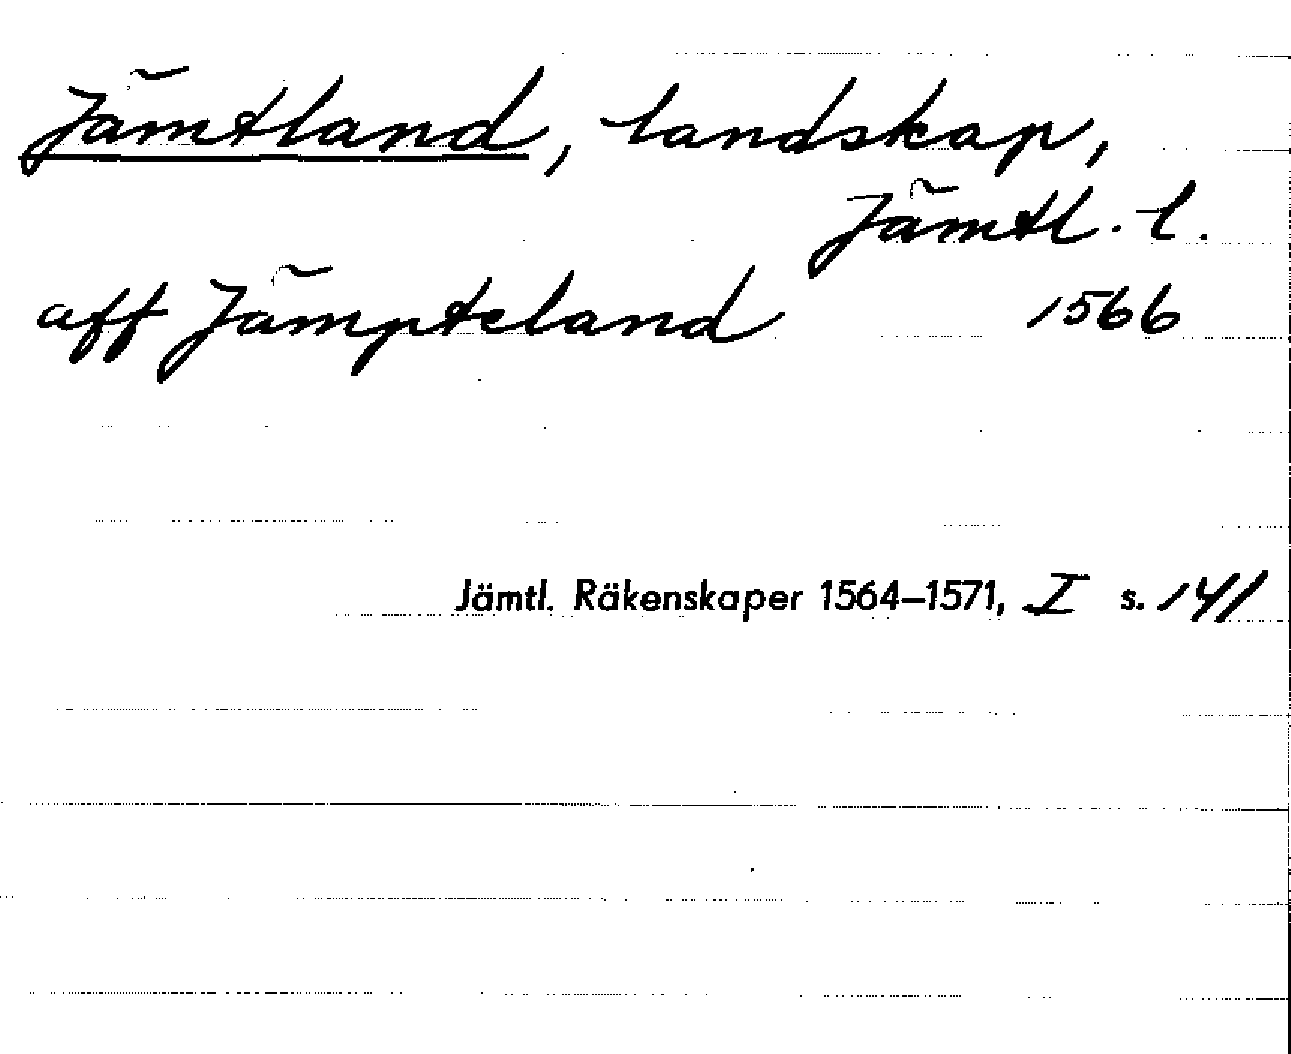 Jämtland, landskap,
Jämtl. l.
aff Jämpteland 1566
Jämtl. Räkenskaper 1564–1571, I s. 141